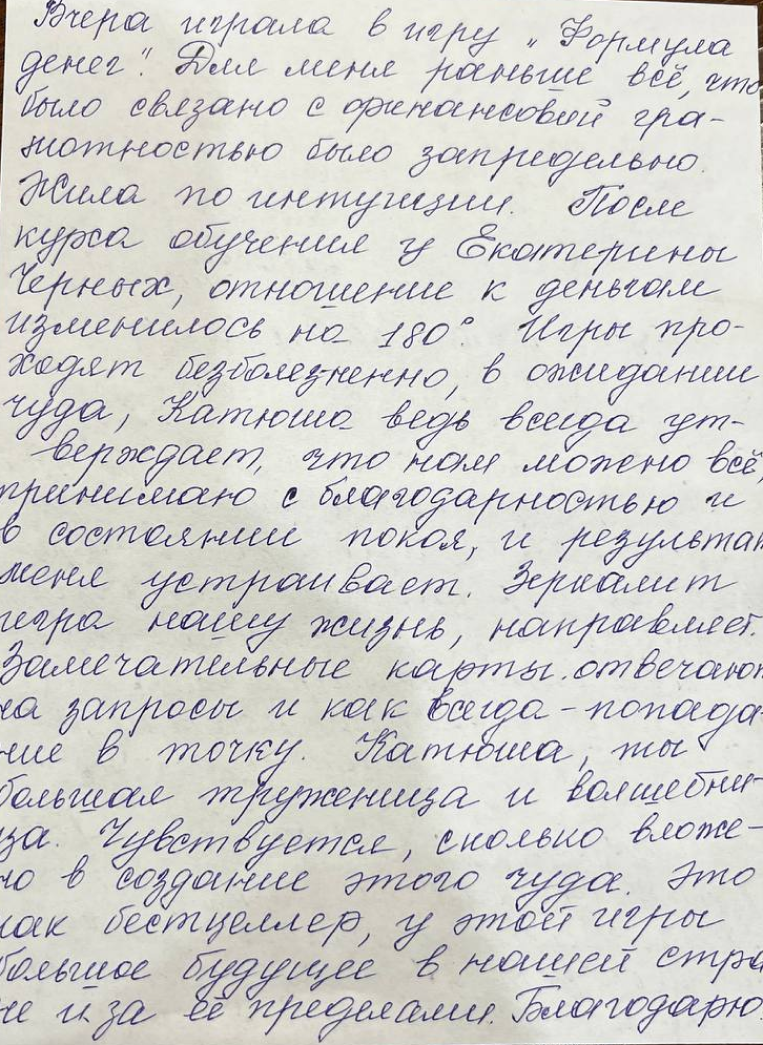 Вчера играла в игру „Формула
денег". Для меня раньше всё, что
было связано с финансовой гра-
мотностью было запредельно.
Жила по интуиции. После
курса обучения у Екатерины
Черных, отношение к деньгам
изменилось на 180°. Игры про-
ходят безболезненно, в ожидании
чуда, Катюша ведь всегда ут-
верждает, что нам можно всё,
принимаю с благодарностью и
в состоянии покоя, и результат
меня устраивает. Зеркалит
игра нашу жизнь, направляет.
Замечательные карты. отвечают
на запросы и как всегда - попада-
ние в точку. Катюша, ты
большая труженица и волшебни-
ца. Чувствуется, сколько вложе-
но в создание этого чуда. Это
как бестцеллер, у этой игры
большое будущее в нашей стра
не и за её пределами. Благодарю.